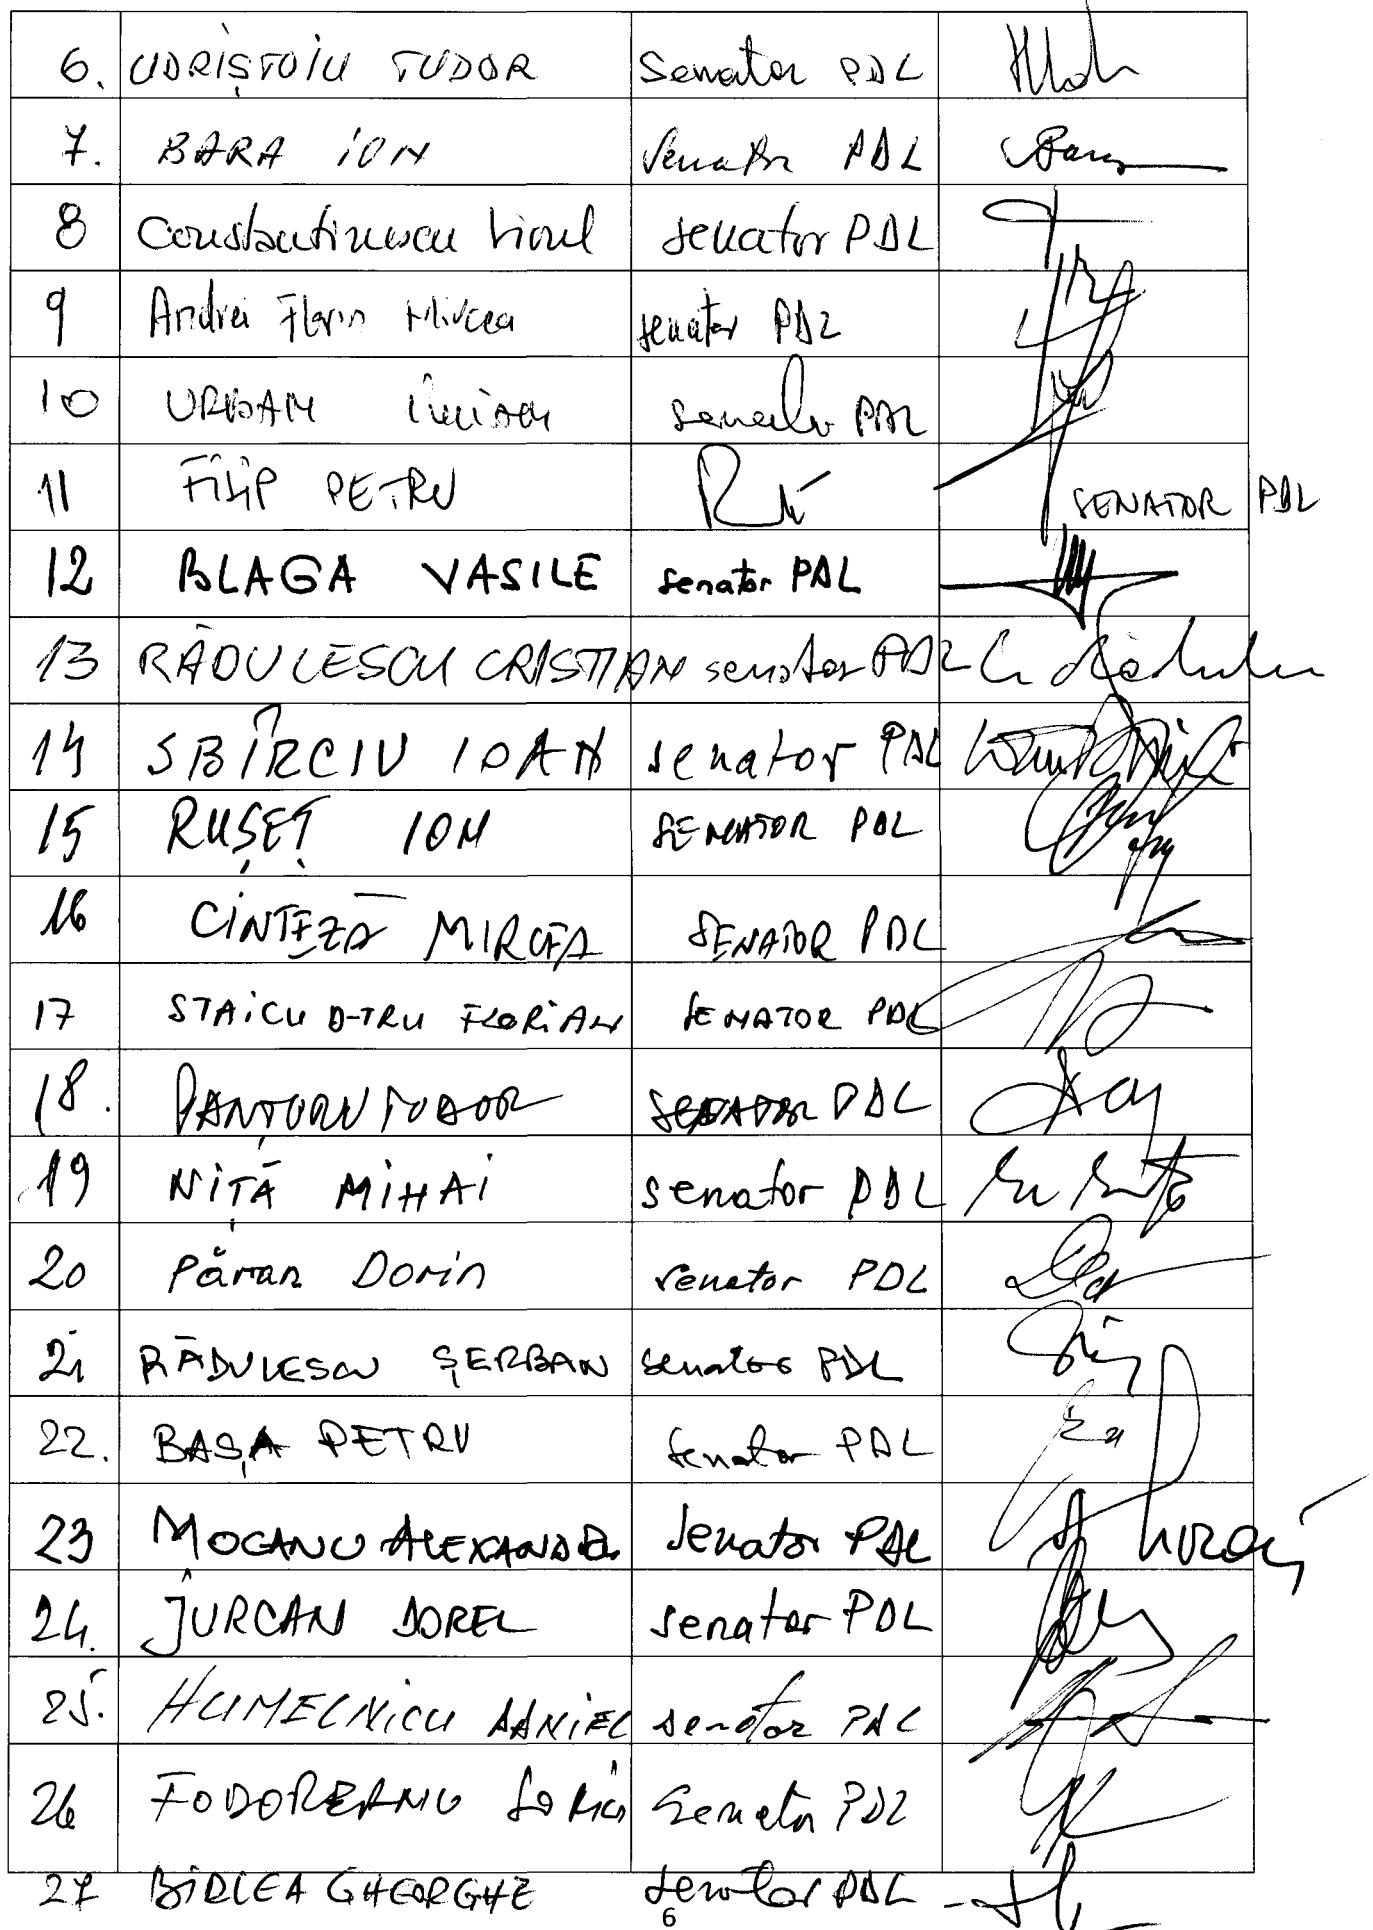 6. UDRIȘTOIU TUDOR Senator PDL
7. BARA ION Senator PDL
8 Constantinescu Viorel senator PDL
9 Andrei Florin Mircea senator PDL
10 URBAN Iulian senator PDL
11 FILIP PETRU SENATOR PDL
12 BLAGA VASILE senator PDL
13 RĂDULESCU CRISTIAN senator PDL
14 SBÎRCIU IOAN senator PDL
15 RUȘEȚ ION SENATOR PDL
16 CINTEZĂ MIRCEA SENATOR PDL
17 STAICU D-TRU FLORIAN SENATOR PDL
18. PANȚURU TUDOR SENATOR PDL
19 NIȚĂ MIHAI senator PDL
20 Păran Dorin senator PDL
21 RĂDULESCU ȘERBAN senator PDL
22. BAȘA PETRU senator PDL
23 MOCANU ALEXANDRU senator PDL
24. JURCAN DOREL senator PDL
25. HUMELNICU DANIEL senator PDL
26 FODOREANU SORIN Senator PDL
27 BÎRLEA GHEORGHE senator PDL
6